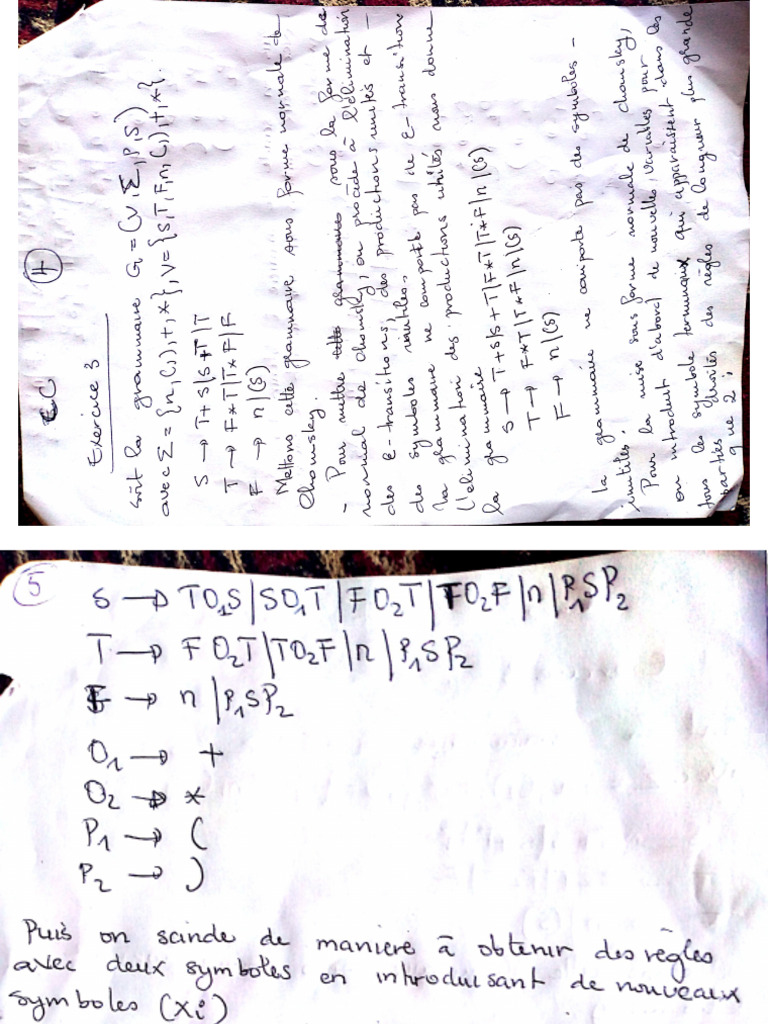 EC
4
Exercice 3
soit la grammaire G = (V, Σ, P, S)
avec Σ = {n, (, ), +, *}, V = {S, T, F, n, (, ), +, *}.
S → T+S|S+T|T
T → F*T|T*F|F
F → n|(S)
Mettons cette grammaire sous forme normale de
Chomsky.
- Pour mettre cette grammaire sous la forme de
normal de Chomsky, on procède à l'élimination
des ε-transitions, des productions unités et -
des symboles inutiles.
la grammaire ne comporte pas de ε-transition
l'élimination des productions unités nous donne
la grammaire
S → T+S|S+T|F*T|T*F|n|(S)
T → F*T|T*F|n|(S)
F → n|(S)
la grammaire ne comporte pas des symboles -
inutiles.
Pour la mise sous forme normale de chomsky,
on introduit d'abord de nouvelles variables pour
tous les symbole terminaux qui apparaissent dans les
parties droites des règles de longueur plus grande
que 2 ;
5
S → TO₁S|SO₁T|FO₂T|TO₂F|n|P₁SP₂
T → FO₂T|TO₂F|n|P₁SP₂
F → n|P₁SP₂
O₁ → +
O₂ → *
P₁ → (
P₂ → )
Puis on scinde de maniere à obtenir des règles
avec deux symboles en introduisant de nouveaux
symboles (Xi)